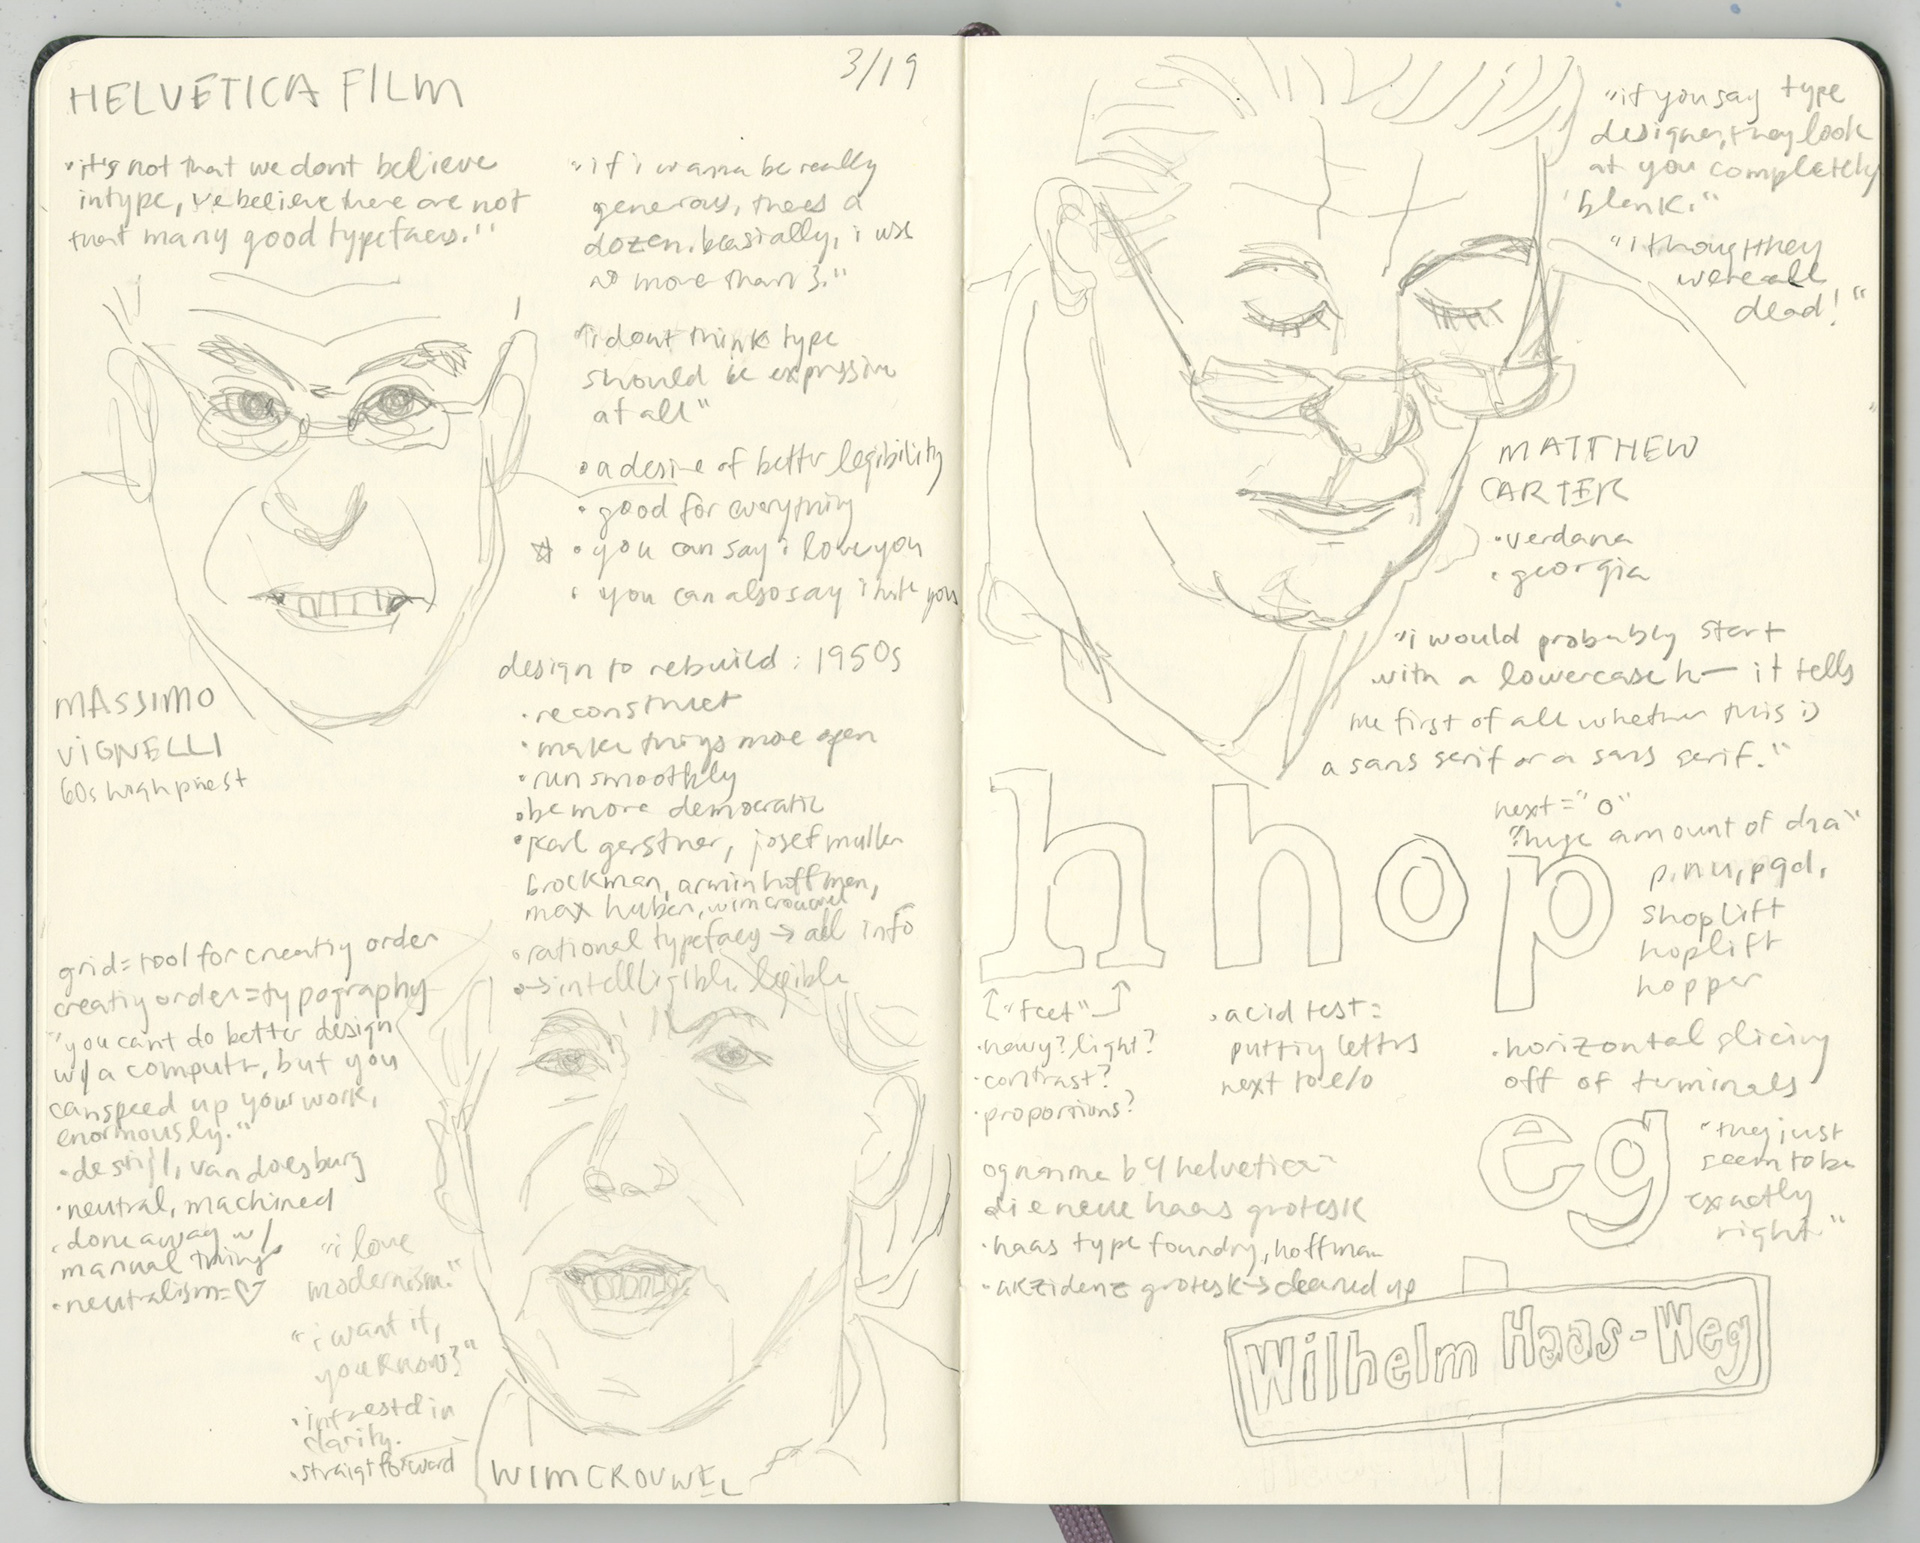 HELVETICA FILM
3/19
"it's not that we dont believe
in type, we believe there are not
that many good typefaces."
MASSIMO
VIGNELLI
60s high priest
"if i wanna be really
generous, theres a
dozen. basially, i use
no more than 3."
"i dont think type
should be expressive
at all"
• a desire of better legibility
• good for everything
☆ • you can say i love you
• you can also say i hate you
design to rebuild : 1950s
• reconstruct
• make things more open
• run smoothly
• be more democratic
• karl gerstner, josef muller
brockman, armin hoffman,
max huber, wim crouwel
• rational typefaces → all info
• → intelligible, legible
grid = tool for creating order
creating order = typography
"you cant do better design
w/ a computer, but you
can speed up your work,
enormously."
• de stijl, van doesburg
• neutral, machined
• done away w/
manual things
• neutralism = ♡
"i love
modernism."
"i want it,
you know?"
• intrested in
clarity.
• straigtforward
WIM CROUWEL
"if you say type
designer, they look
at you completely
blank."
"i thought they
were all
dead!"
MATTHEW
CARTER
• verdana
• georgia
"i would probably start
with a lowercase h— it tells
me first of all whether this is
a sans serif or a sans serif."
h h o p
next = "o"
"huge amount of dna"
p, n u, pqd,
shoplift
hoplift
hopper
"feet"
• heavy? light?
• contrast?
• proportions?
• acid test =
putting letters
next to e/o
• horizontal slicing
off of terminals
eg
"they just
seem to be
exactly
right"
og name b4 helvetica -
die neue haas grotesk
• haas type foundry, hoffman
• akzidenz grotesk → cleaned up
Wilhelm Haas-Weg